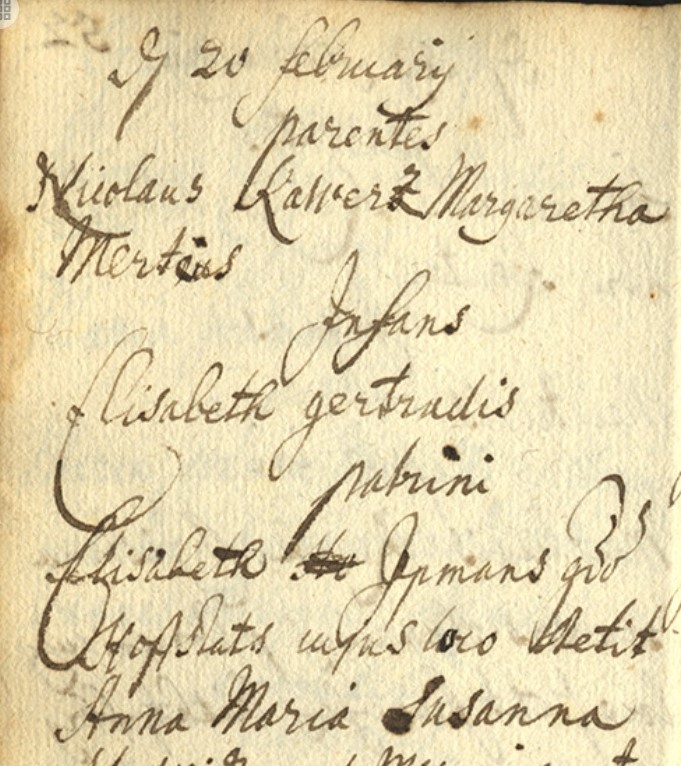 D 20 februarij
parentes
Nicolaus Lawerz Margaretha
Mertens
Infans
Elisabeth gertrudis
patrini
Elisabeth Ipmans
Hofstats cujus loco stetit
Anna Maria Susanna